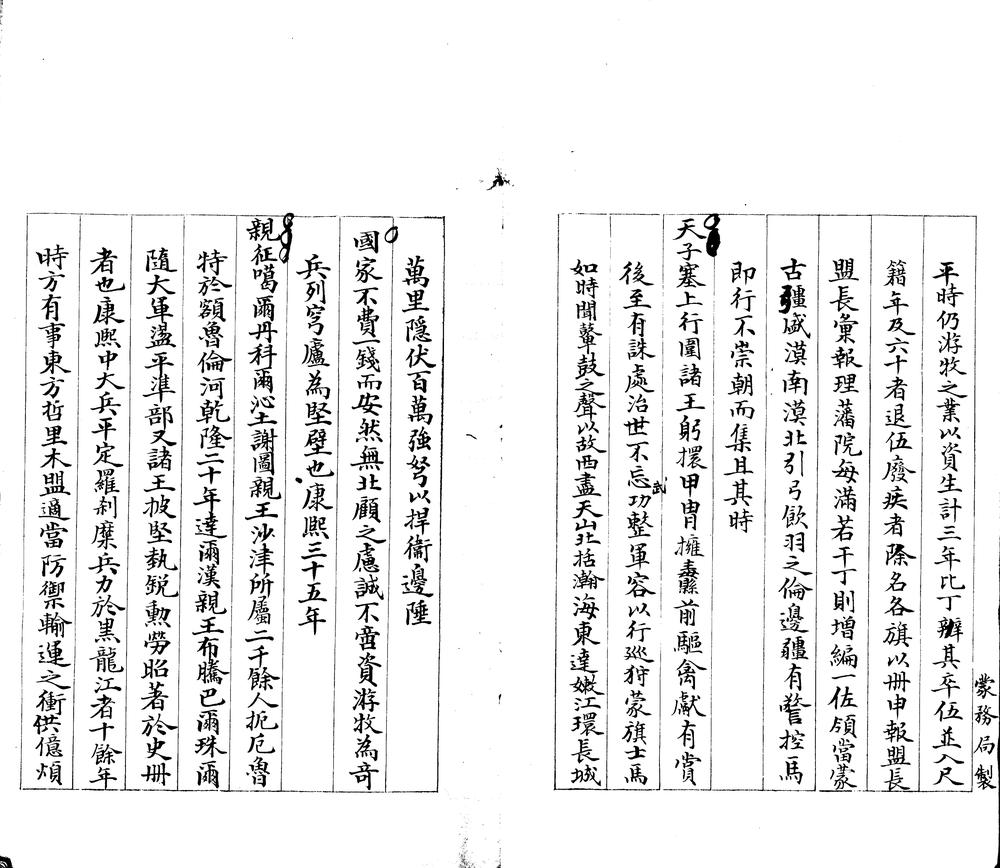 平時仍游牧之業以資生計三年比丁辦其卒伍並入尺
籍年及六十者退伍廢疾者除名各旗以册申報盟長
盟長彙報理藩院每滿若干丁則增編一佐領當蒙
古疆盛漠南漠北引弓飲羽之倫邊疆有警控馬
即行不崇朝而集且其時
天子塞上行圍諸王躬擐甲冑擁纛前驅禽獻有賞
後至有誅處治世不忘武功整軍容以行巡狩蒙旗士馬
如時聞鼙鼓之聲以故西盡天山北括瀚海東達嫩江環長城
蒙務局製
萬里隱伏百萬強弩以捍衞邊陲
國家不費一錢而安然無北顧之慮誠不啻資游牧為奇
兵列穹廬為堅壁也康熙三十五年
親征噶爾丹科爾沁土謝圖親王沙津所屬二千餘人扼厄魯
特於額魯倫河乾隆二十年達爾漢親王布騰巴爾珠爾
隨大軍盪平準部又諸王披堅執鋭勳勞昭著於史册
者也康熙中大兵平定羅刹糜兵力於黑龍江者十餘年
時方有事東方哲里木盟適當防禦輸運之衝供億煩